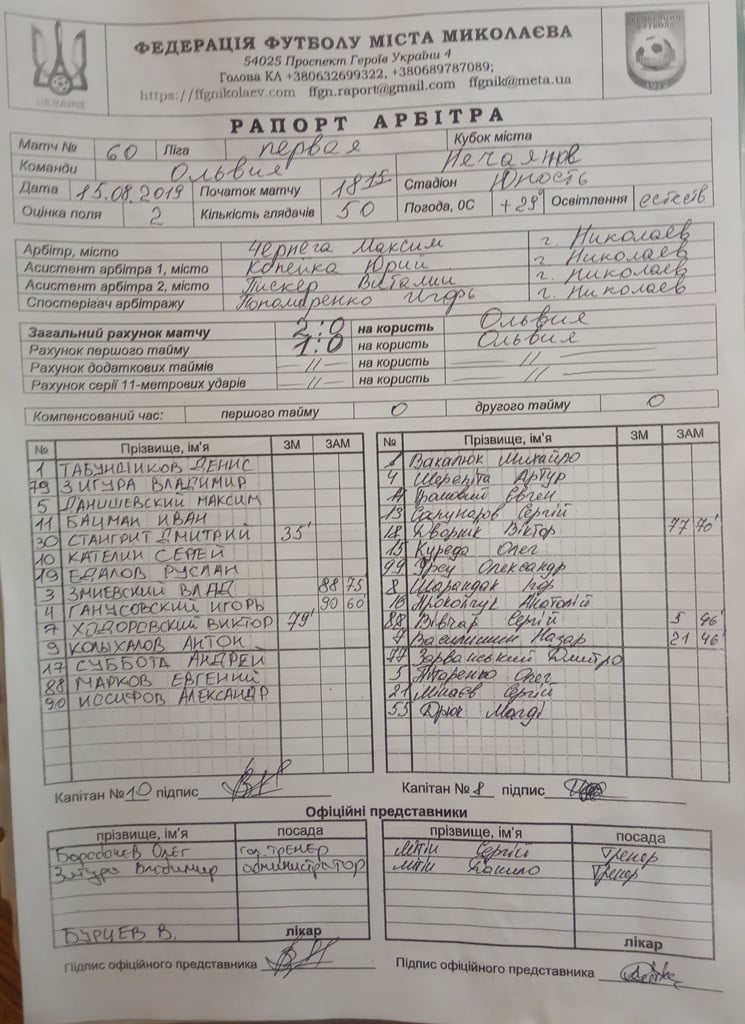 ФЕДЕРАЦІЯ ФУТБОЛУ МІСТА МИКОЛАЄВА
54025 Проспект Героїв України 4
Голова КА +380632699322, +380689787089;
https://ffgnikolaev.com ffgn.raport@gmail.com ffgnik@meta.ua
UKRAINE
1919
РАПОРТ АРБІТРА
Матч № 60 Ліга первая Кубок міста
Команди Ольвия Нечаянов
Дата 15.08.2019 Початок матчу 18 15 Стадіон Юность
Оцінка поля 2 Кількість глядачів 50 Погода, 0С +29° Освітлення естеств
Арбітр, місто Чернега Максим г. Николаев
Асистент арбітра 1, місто Копейка Юрий г. Николаев
Асистент арбітра 2, місто Пискер Виталий г. Николаев
Спостерігач арбітражу Пономаренко Игорь г. Николаев
Загальний рахунок матчу 2:0 на користь Ольвия
Рахунок першого тайму 1:0 на користь Ольвия
Рахунок додаткових таймів –//– на користь –//–
Рахунок серії 11-метрових ударів –//– на користь –//–
Компенсований час: першого тайму 0 другого тайму 0
№ Прізвище, ім'я ЗМ ЗАМ
1 ТАБУНЩИКОВ ДЕНИС
79 ЗИГУРА ВЛАДИМИР
5 ДАНИШЕВСКИЙ МАКСИМ
11 БАЦМАН ИВАН
30 СТАНГРИТ ДМИТРИЙ 35'
10 КАТЕЛИН СЕРГЕЙ
19 ЕДАЛОВ РУСЛАН
3 ЗМИЕВСКИЙ ВЛАД 88 75
4 ГАНУСОВСКИЙ ИГОРЬ 90 60'
7 ХОДОРОВСКИЙ ВИКТОР 79'
9 КОЛЫХАЛОВ АНТОН
17 СУББОТА АНДРЕЙ
88 МАРКОВ ЕВГЕНИЙ
90 ИОСИФОВ АЛЕКСАНДР
№ Прізвище, ім'я ЗМ ЗАМ
Вакалюк Михайло
4 Шерепіта Артур
Евген
13 Сергій
18 Дворнік Віктор 77 70'
15 Курєда Олег
99 Урсу Олександр
8 Шарандак
16 Прокопчук Анатолій
88 Вівчар Сергій 5 46'
7 Василишин Назар 21 46'
77 Зарванський Дмитро
5 Олег
21 Мінаєв Сергій
55
Капітан № 10 підпис
Капітан № 8 підпис
Офіційні представники
прізвище, ім'я посада
Олег гл. ТРЕНЕР
Зигура Владимир администратор
БУРЦЕВ В. лікар
прізвище, ім'я посада
Сергій Тренер
Данило Тренер
лікар
Підпис офіційного представника
Підпис офіційного представника